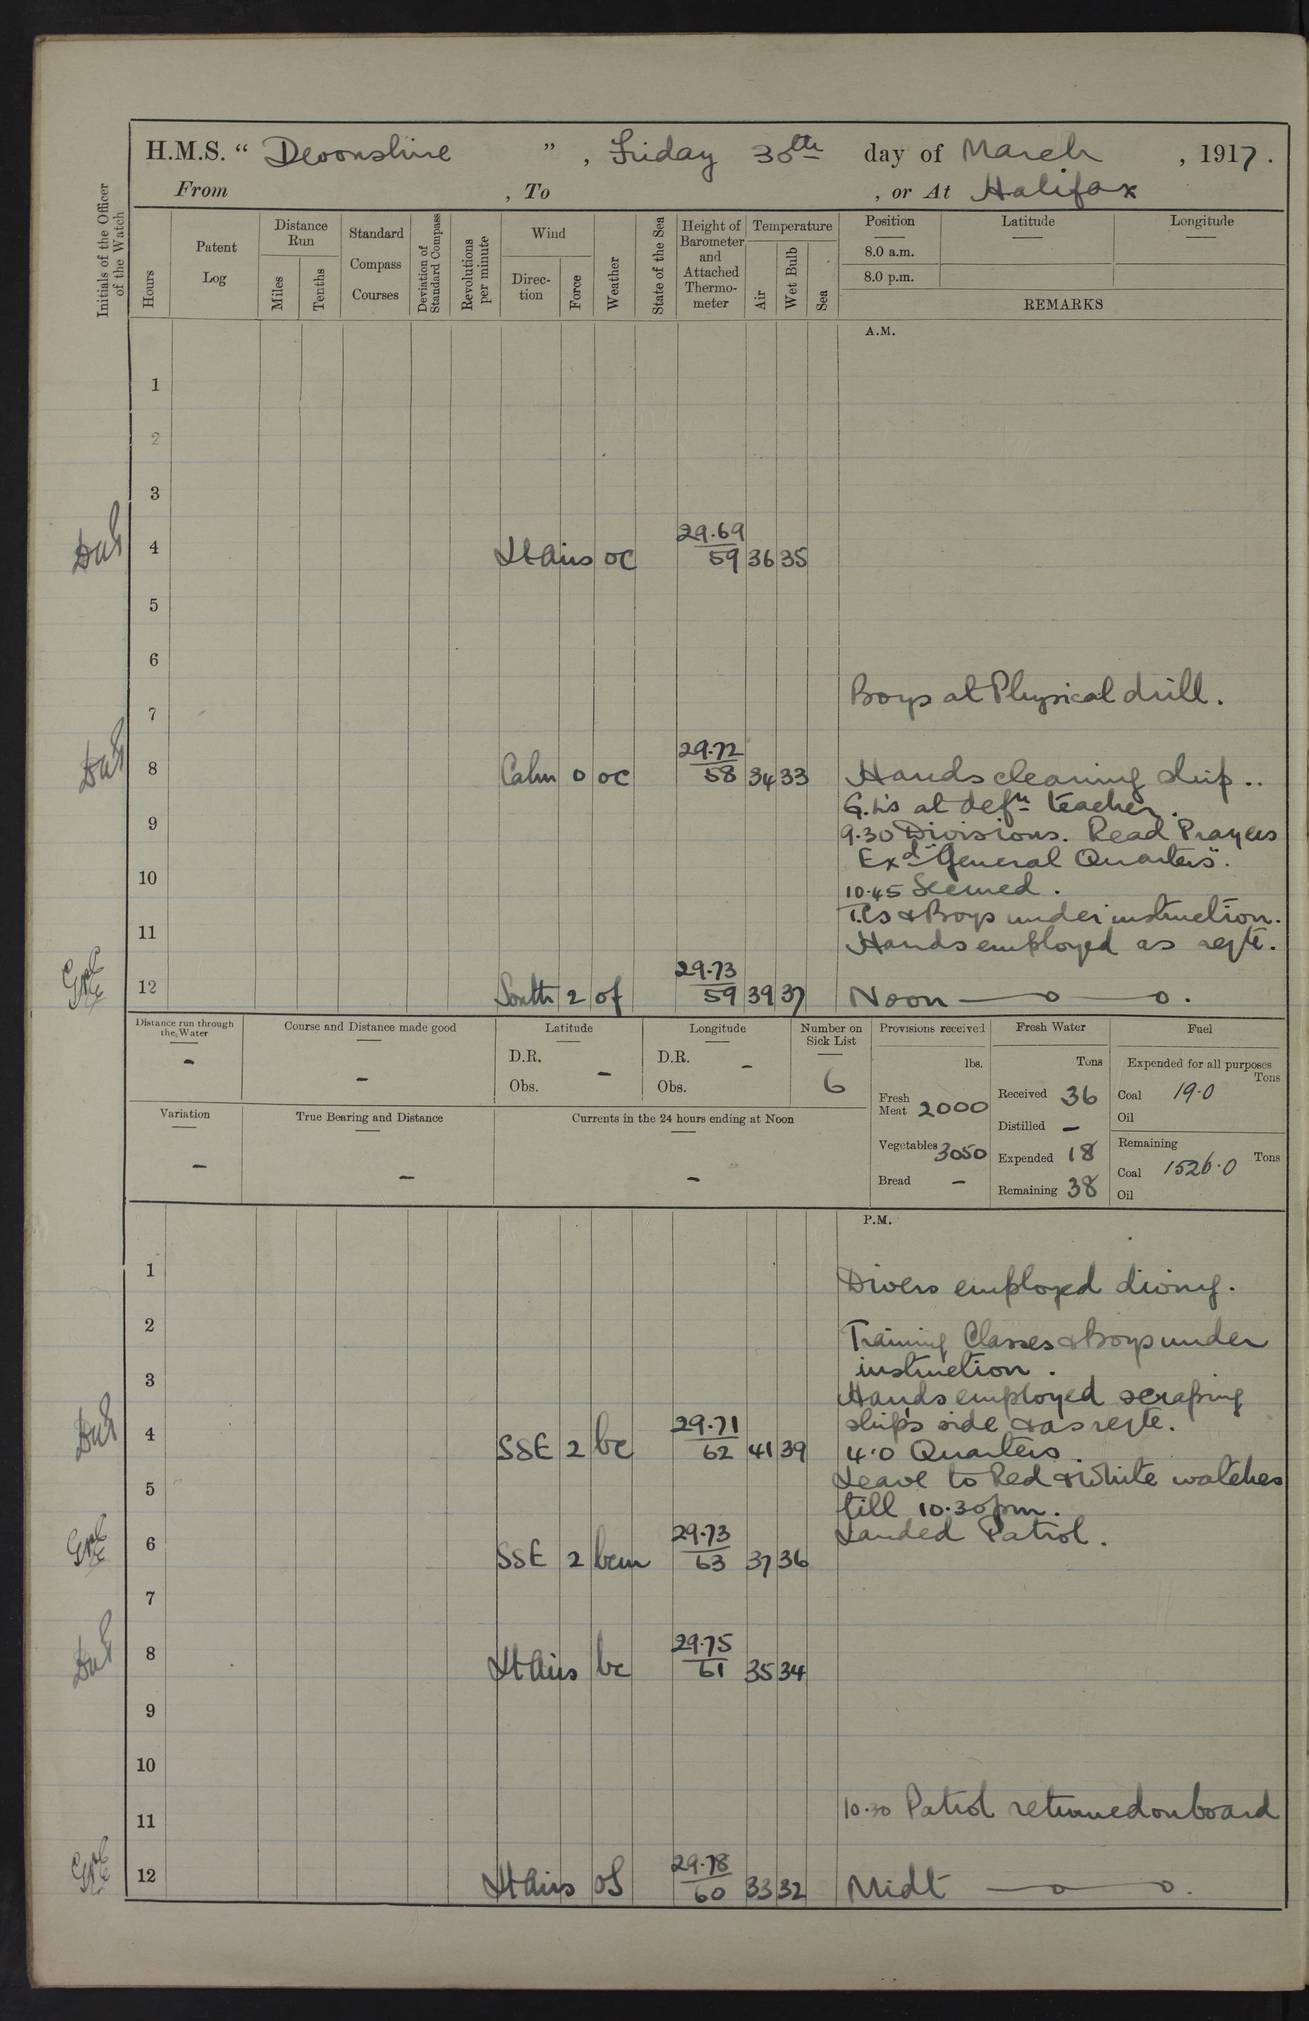 H.M.S. “ Devonshire ” , Friday 30th day of March , 1917 .
From , To , or At Halifax
Initials of the Officer of the Watch
Hours
Patent Log
Distance Run
Miles
Tenths
Standard Compass Courses
Deviation of Standard Compass
Revolutions per minute
Wind
Direc-tion
Force
Weather
State of the Sea
Height of Barometer and Attached Thermo-meter
Temperature
Air
Wet Bulb
Sea
Position Latitude Longitude
8.0 a.m.
8.0 p.m.
REMARKS
A.M.
1
2
3
4 Lt Airs oc 29.69 59 36 35
5
6
Boys at Physical drill.
7
8 Calm 0 oc 29.72 58 34 33 Hands cleaning ship ..
G.L's at defn teacher.
9
9.30 Divisions. Read Prayers
Exd "General Quarters".
10
10.45 Secured.
T.Cs & Boys under instruction.
11
Hands employed as reqte.
12 South 2 of 29.73 59 39 37 Noon — o — o.
Distance run through the Water
-
Course and Distance made good
-
Latitude
D.R.
Obs.
-
Longitude
D.R.
Obs.
-
Number on Sick List
6
Provisions received
lbs.
Fresh Meat 2000
Vegetables 3050
Bread -
Fresh Water
Tons
Received 36
Distilled -
Expended 18
Remaining 38
Fuel
Expended for all purposes
Tons
Coal 19.0
Oil
Remaining
Tons
Coal 1526.0
Oil
Variation
-
True Bearing and Distance
-
Currents in the 24 hours ending at Noon
-
P.M.
1
Divers employed diving.
2
Training Classes & Boys under
instruction.
3
Hands employed scraping
ship's side & as reqte.
4 SSE 2 bc 29.71 62 41 39 4.0 Quarters.
Leave to Red & White watches
5
till 10.30pm.
Landed Patrol.
6 SSE 2 bcm 29.73 63 37 36
7
8 Lt Airs bc 29.75 61 35 34
9
10
10.30 Patrol returned on board
11
12 Lt Airs of 29.78 60 33 32 Midt — o — o.